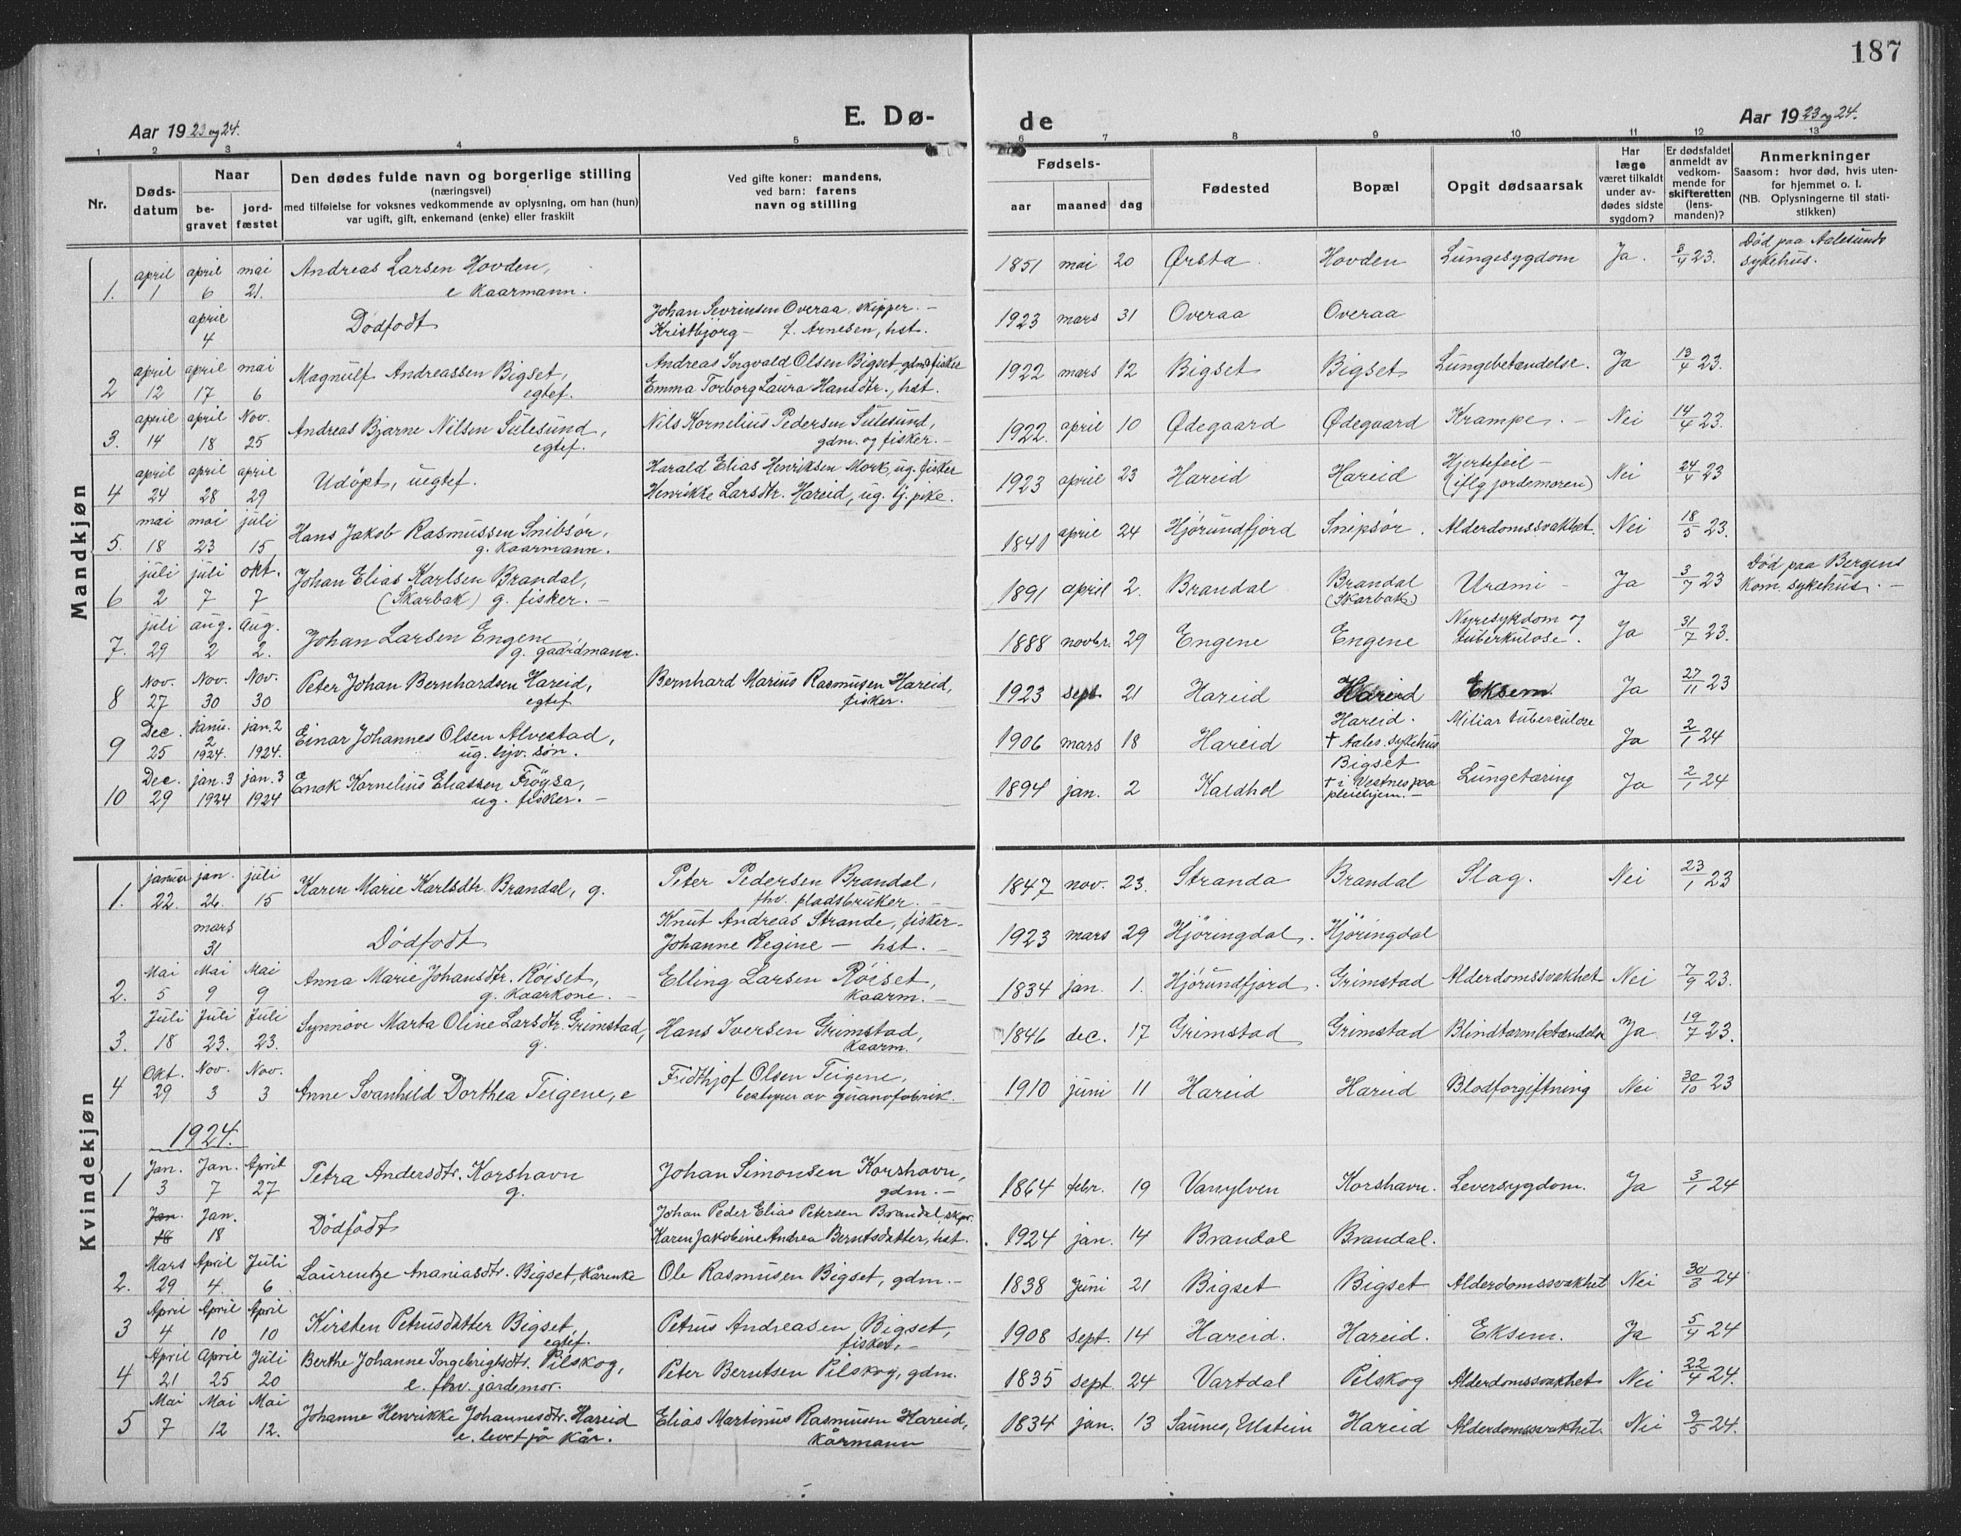 187
Aar 1923 og 24.
E. Dø-
de
Aar 1923 og 24.
1 2 3 4 5 6 7 8 9 10 11 12 13
Nr.
Døds-
datum
Naar
be-
gravet
jord-
fæstet
Den dødes fulde navn og borgerlige stilling
(næringsvei)
med tilføielse for voksnes vedkommende av oplysning, om han (hun)
var ugift, gift, enkemand (enke) eller fraskilt
Ved gifte koner: mandens,
ved barn: farens
navn og stilling
Fødsels-
aar maaned dag
Fødested
Bopæl
Opgit dødsaarsak
Har
læge
været tilkaldt
under av-
dødes sidste
sygdom?
Er dødsfaldet
anmeldt av
vedkom-
mende for
skifteretten
(lens-
manden)?
Anmerkninger
Saasom: hvor død, hvis uten-
for hjemmet o. l.
(NB. Oplysningerne til stati-
stikken)
Mandkjøn
1. april 1 april 6 mai 21. Andreas Larsen Hovden, e kaarmann. 1851 mai 20 Ørsta Hovden Lungesygdom Ja. 3/4 23. Død paa Aalesunds sykehus.
april 4 Dødfödt Johan Sevrinsen Overaa, skipper. – Kristbjörg – f. Arnesen, hst. 1923 mars 31 Overaa Overaa
2 april 12 april 17 mai 6 Magnulf Andreassen Bigset, egtef. Andreas Ingvald Olsen Bigset gdm fisker Emma Torborg Laura Hansdtr., hst. 1922 mars 12 Bigset Bigset Lungebetændelse. Ja 13/4 23.
3. april 14 april 18 Nov. 25 Andreas Bjarne Nilsen Sulesund, egtef. Nils Kornelius Pedersen Sulesund, gdm. og fisker. – 1922. april 10 Ødegaard Ødegaard Krampe. – Nei 14/4 23.
4 april 24 april 28 april 29 Udöpt, uegtef. Harald Elias Henriksen Mork, ug. fisker Henrikke Larsdtr. Hareid, ug. tj. pike. 1923 april 23 Hareid Hareid Hjertefeil – (iflg jordemoren) Nei 24/4 23
5. mai 18 mai 23 juli 15 Hans Jakob Rasmussen Snibsör, g. kaarmann. 1841 april 24 Hjörundfjord Snipsör. Alderdomssvakhet. Nei 18/5 23.
6 juli 2 juli 7 okt. 7 Johan Elias Karlsen Brandal, (Skarbak) g. fisker. – 1891 april 2. Brandal Brandal (Skarbak) Urämi – Ja 3/7 23 Død paa Bergens kom. sykehus. –
7. juli 29 aug. 2 aug. 2. Johan Larsen Engene g. gaardmann. 1888 novbr. 29 Engene Engene Nyresykdom og tuberkulose. Ja 31/7 23.
8 Nov. 27 Nov. 30 Nov. 30 Peter Johan Bernhardsen Hareid, egtef. Bernhard Marius Rasmusen Hareid, fisker. 1923 sept. 21 Hareid Hareid Eksem Ja 27/11 23
9 Dec. 25 Janu. 2 1924. jan. 2 1924. Einar Johannes Olsen Alvestad, ug. hjv. søn. 1906 mars 18 Hareid Hareid. † Aales. sykehus Miliar tuberculose Ja 2/1 24
10 Dec. 29 jan. 3 1924 jan. 3 1924 Enok Kornelius Eliassen Fröysa, ug. fisker. – 1894 jan. 2 Kaldhol Bigset † i Vestnes paa pleiehjem. – Lungetæring Ja 2/1 24
Kvindekjøn
1. januar 22. jan. 26. juli 15 Karen Marie Karlsdtr. Brandal, g. Peter Pedersen Brandal, fhv. pladsbruker. – 1847 nov. 23. Stranda Brandal Slag. Nei 23/1 23
mars 31 Dødfodt Knut Andreas Strande, fisker – Johanne Regine – hst. – 1923 mars 29 Hjöringdal. Hjöringdal
2. Mai 5 Mai 9 Mai 9 Anna Marie Johansdtr. Röiset, g. kaarkone. – Elling Larsen Röiset, kaarm. – 1834 jan. 1. Hjörundfjord. Grimstad Alderdomssvakhet Nei 7/9 23.
3. Juli 18 Juli 23. Juli 23. Synnöve Marta Oline Larsdtr. Grimstad, g. Hans Iversen Grimstad, kaarm. 1846 dec. 17 Grimstad Grimstad Blindtarmbetændelse Ja 19/7 23.
4 Okt. 29 Nov. 3 Nov. 3 Anne Svanhild Dorthea Teigene, e Fridthjof Olsen Teigene, bestyrer av guanofabrik. 1910 juni 11 Hareid Hareid Blodforgiftning Nei 30/10 23
1924.
1 Jan. 3 Jan. 7 April 27 Petra Andersdtr. Korshavn g. Johan Simonsen Korshavn, gdm. – 1864 febr. 19 Vanylven Korshavn. Leversygdom. Ja 3/1 24
Jan. 18 Jan. 18 Dödfödt Johan Peder Elias Petersen Brandal, skpr. Karen Jakobine Andrea Berntsdatter, hst. 1924 jan. 14 Brandal Brandal.
2. Mars 29 April 4. Juli 6 Laurentze Ananiasdtr. Bigset, kårenke Ole Rasmusen Bigset, gdm. – 1838 Juni 21 Bigset Bigset Alderdomssvakhet Nei 30/3 24
3 April 4 April 10 April 10 Kirsten Petrusdatter Bigset, egtef. Petrus Andreasen Bigset, fisker, – 1908 sept. 14 Hareid. Hareid. Eksem. Ja 5/4 24
4 April 21 April 25 Juli 20 Berthe Johanne Ingebrigtsdtr. Pilskog, e. fhv. jordemor. Peter Berntsen Pilskog, gdm. 1835 sept. 24 Vartdal Pilskog Alderdomssvakhet Nei 22/4 24.
5 Mai 7 Mai 12 Mai 12. Johanne Henrikke Johannesdtr. Hareid e. levet på kår. Elias Martinus Rasmusen Hareid, kårmann 1834 jan. 13 Saunes, Ulstein Hareid Alderdomssvakhet. Nei 9/5 24.